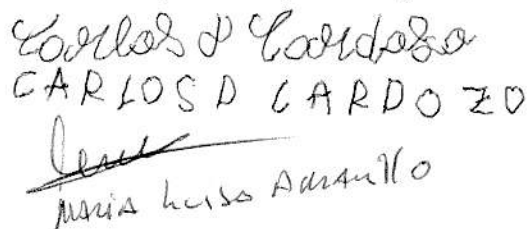 Carlos D Cardozo
CARLOS D CARDOZO
MARIA LUISA